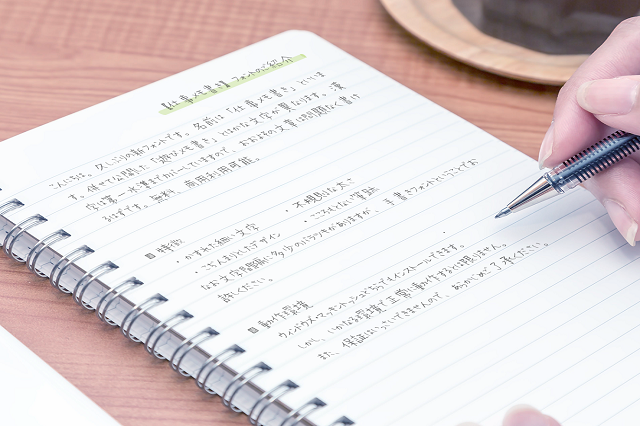 【仕事メモ書き】フォントのご紹介
こんにちは。久しぶりの新フォントです。名前は「仕事メモ書き」といいま
す。併せて公開した「遊びメモ書き」とはかな文字が異なります。漢
字は第一水準をカバーしていますので、おおよその文章は問題なく書け
るはずです。無料、商用利用可能。
■特徴
・かすれた細い文字 ・不規則な太さ
・こぢんまりしたデザイン ・こころもとない筆跡
なお文字間隔に多少のバラつきがありますが、手書きフォントということでお
許しください。
■動作環境
ウィンドウズ・マッキントッシュどちらでもインストールできます。
しかし、いかなる環境でも正常に動作するとは限りません。
また、保証はいっさいできませんので、あらかじめご了承ください。